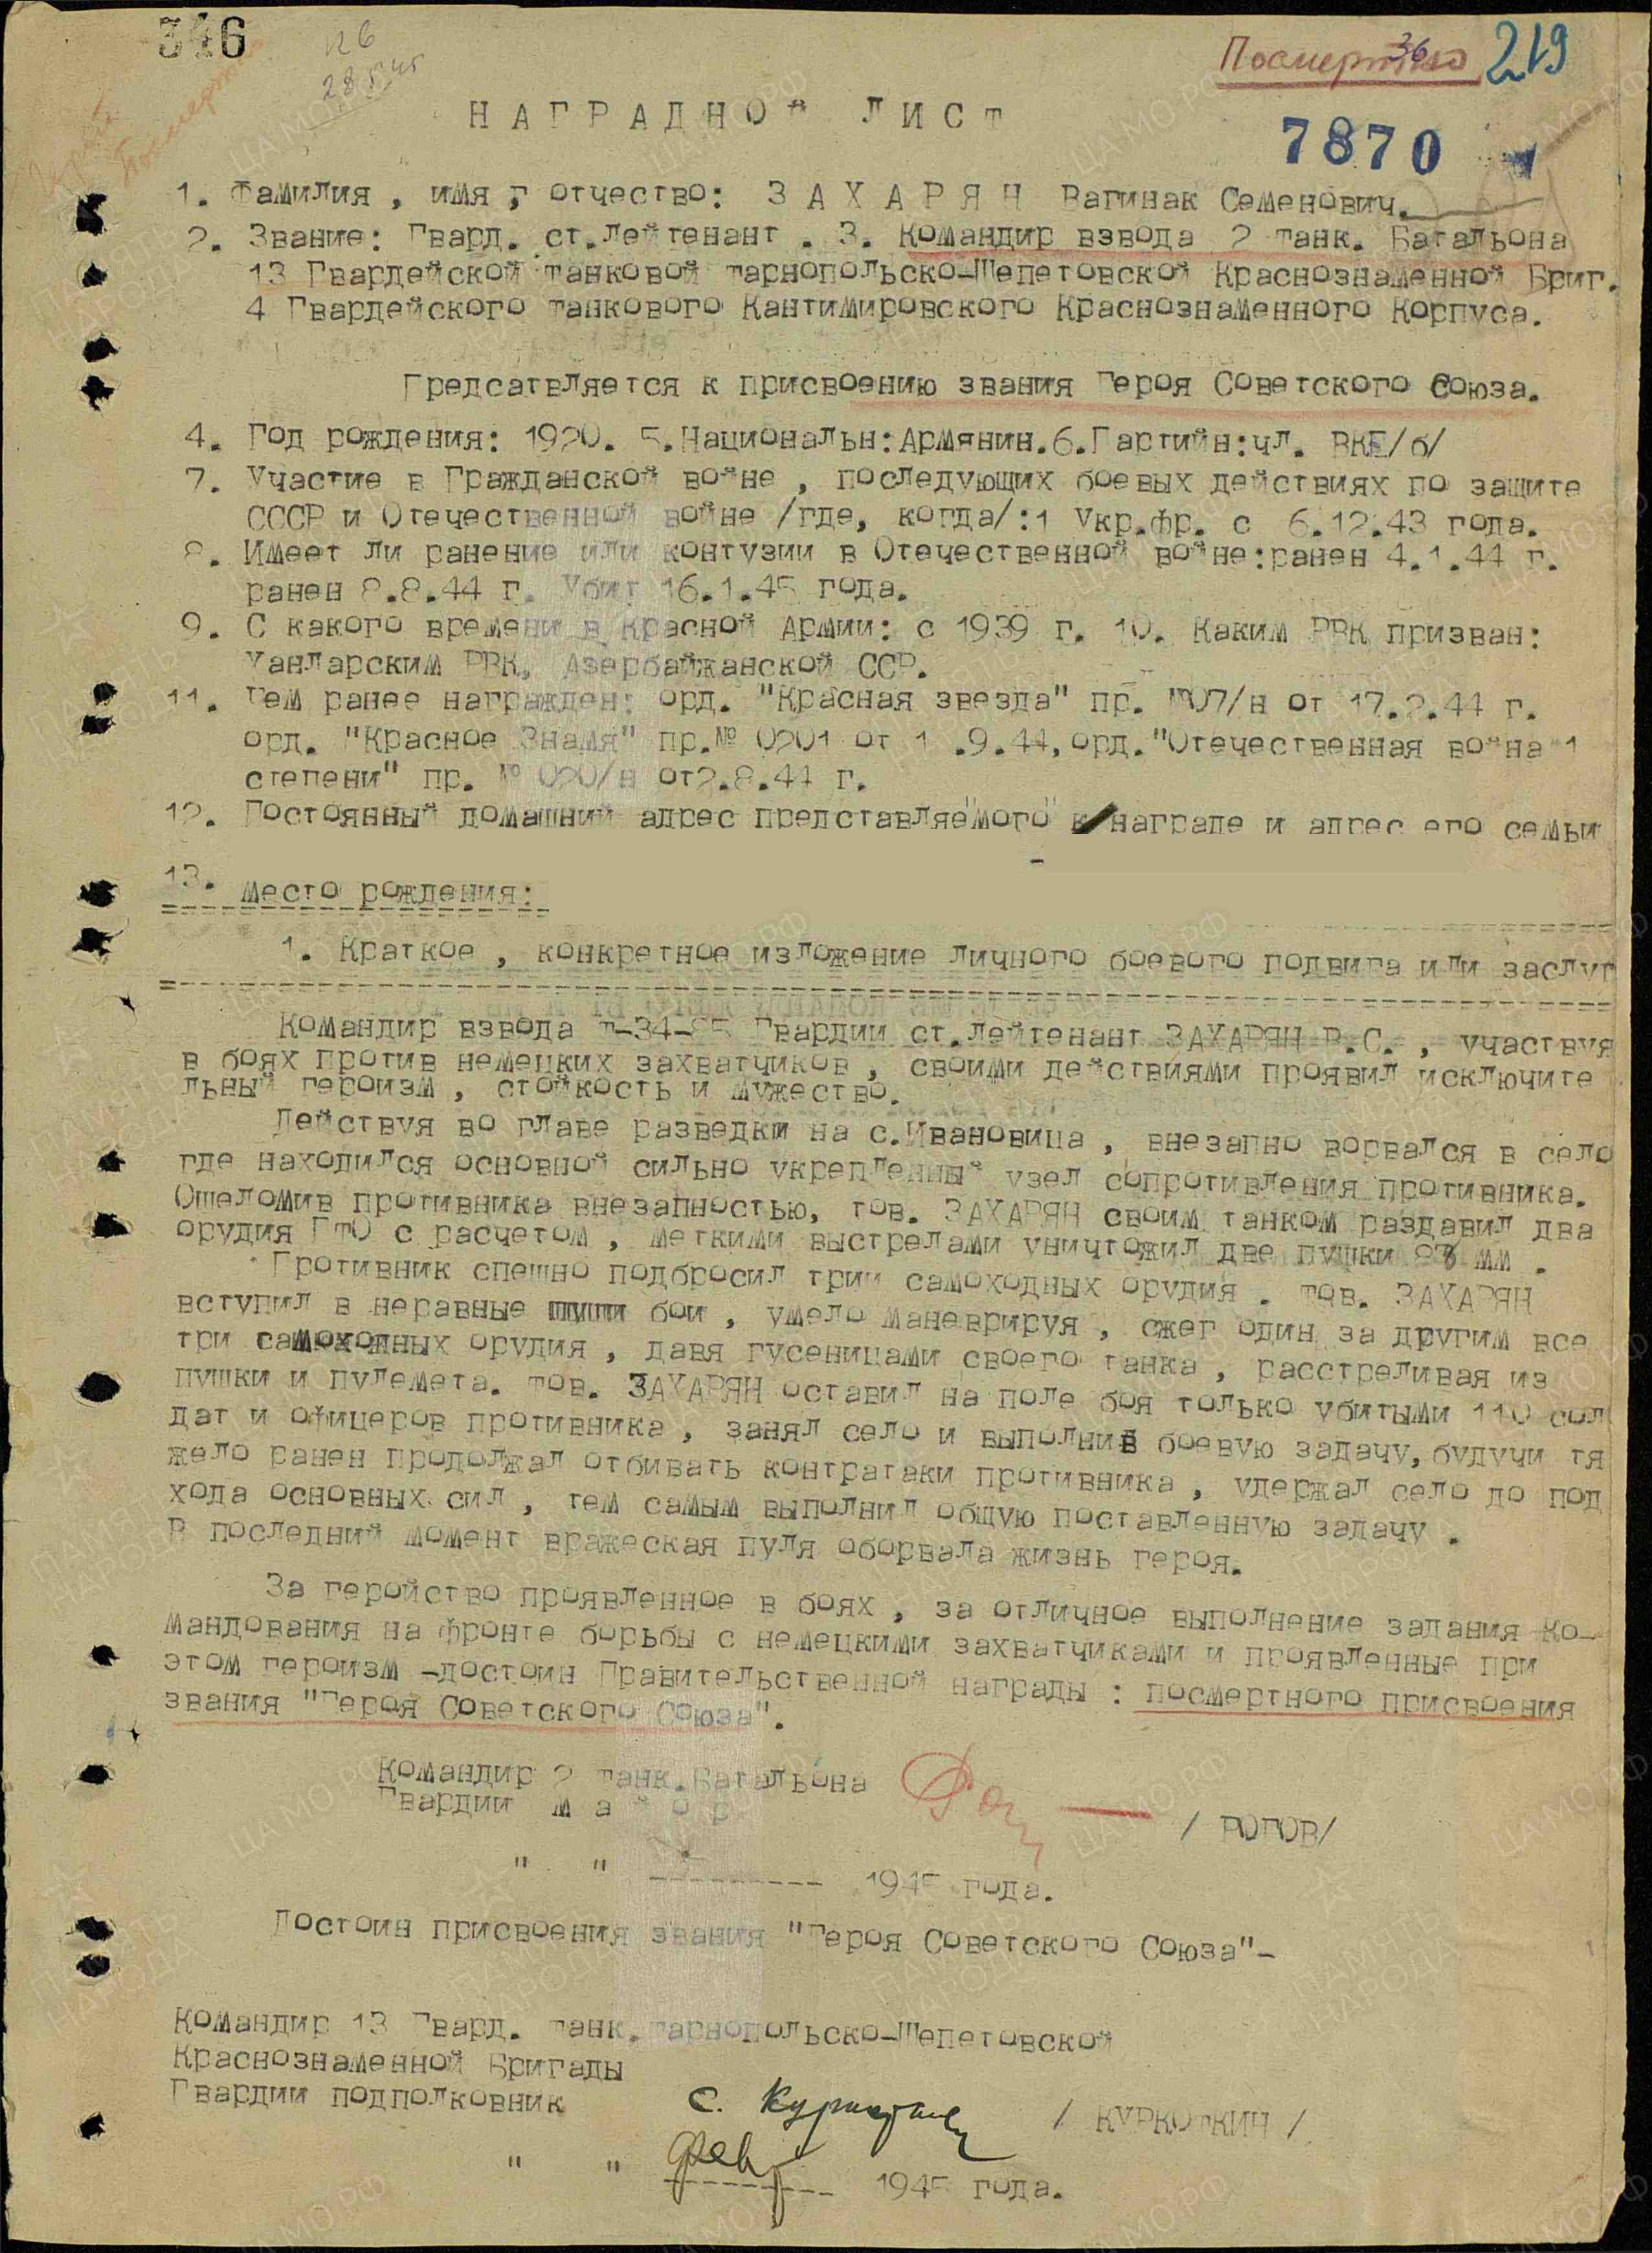 346
Посмертно 219
НАГРАДНОЙ ЛИСТ
7870
1. Фамилия , имя , отчество: ЗАХАРЯН Вагинак Семенович.
2. Звание: Гвард. ст.Лейтенант . 3. Командир взвода 2 танк. Батальона
13 Гвардейской танковой тарнопольско-Шепетовской Краснознаменной Бриг.
4 Гвардейского танкового Кантимировского Краснознаменного Корпуса.
Предсатвляется к присвоению звания Героя Советского Союза.
4. Год рождения: 1920. 5.Национальн:Армянин.6.Партийн:чл. ВКБ/б/
7. Участие в Гражданской войне , последующих боевых действиях по защите
СССР и Отечественной войне /где, когда/:1 Укр.фр. с 6.12.43 года.
8. Имеет ли ранение или контузии в Отечественной войне:ранен 4.1.44 г.
ранен 8.8.44 г. Убит 16.1.45 года.
9. С какого времени в Красной Армии: с 1939 г. 10. Каким РВК призван:
Ханларским РВК, Азербайжанской ССР.
11. Чем ранее награжден: орд. "Красная звезда" пр. №07/н от 17.2.44 г.
орд. "Красное Знамя" пр.№ 0201 от 1 .9.44,орд."Отечественная война 1
степени" пр. № 020/н от2.8.44 г.
12. Постоянный домашний адрес представляемого к награде и адрес его семьи
-
13. место рождения:
1. Краткое , конкретное изложение личного боевого подвига или заслуг
Командир взвода Т-34-85 Гвардии ст.Лейтенант ЗАХАРЯН В.С. , участвуя
в боях против немецких захватчиков , своими действиями проявил исключите
льный героизм , стойкость и мужество.
Действуя во главе разведки на с.Ивановица , внезапно ворвался в село
где находился основной сильно укрепленный узел сопротивления противника.
Ошеломив противника внезапностью, тов. ЗАХАРЯН своим танком раздавил два
орудия ПТО с расчетом , меткими выстрелами уничтожил две пушки 88 мм .
Противник спешно подбросил трии самоходных орудия . тов. ЗАХАРЯН
вступил в неравные бои , умело маневрируя , сжег один за другим все
три самоходных орудия , давя гусеницами своего танка , расстреливая из
пушки и пулемета. тов. ЗАХАРЯН оставил на поле боя только убитыми 110 сол
дат и офицеров противника , занял село и выполнив боевую задачу,будучи тя
жело ранен продолжал отбивать контратаки противника , удержал село до под
хода основных сил , тем самым выполнил общую поставленную задачу .
В последний момент вражеская пуля оборвала жизнь героя.
За геройство проявленное в боях , за отличное выполнение задания Ко-
мандования на фронте борьбы с немецкими захватчиками и проявленные при
этом героизм -достоин Правительственной награды : посмертного присвоения
звания "Героя Советского Союза".
Командир 2 танк.Батальона
Гвардии майор
/ РОГОВ/
" " --------- 1945 года.
Достоин присвоения звания "Героя Советского Союза"-
Командир 13 Гвард. танк.тарнопольско-Шепетовской
Краснознаменной Бригады
Гвардии подполковник С. Куркоткин / КУРКОТКИН /
" " фев 1945 года.